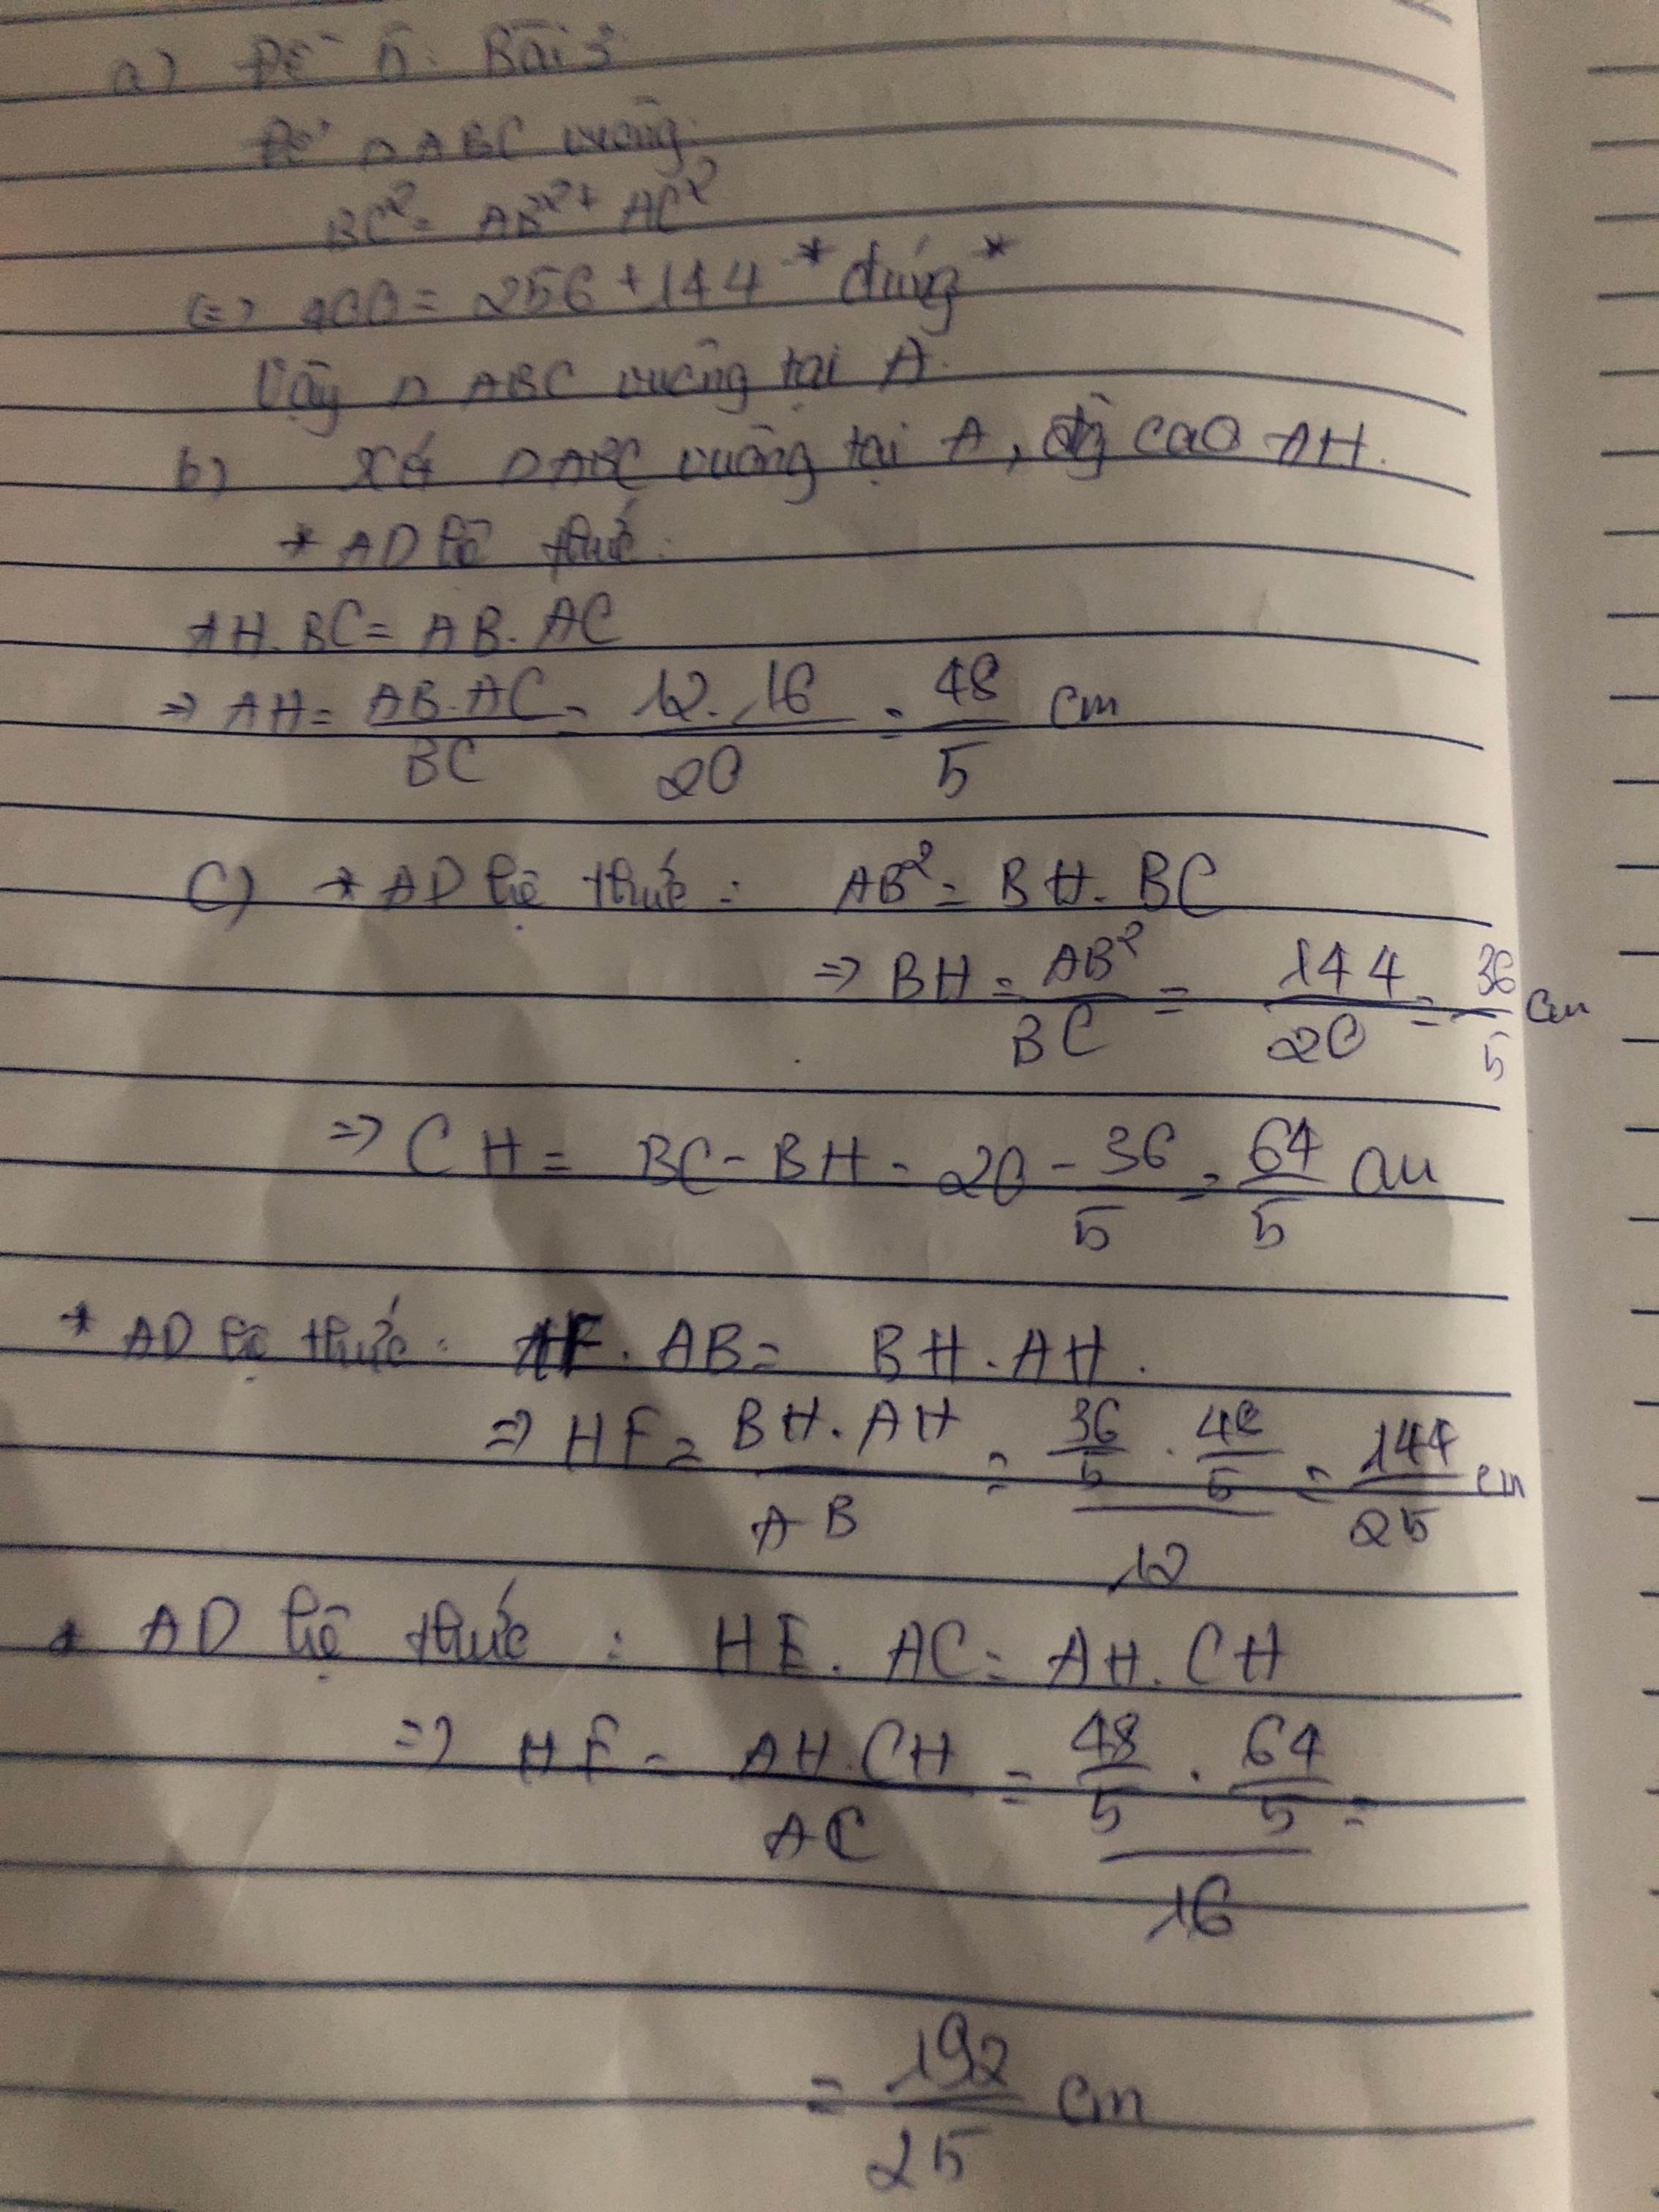 a) Đề 5: Bài 3
Để △ABC vuông:
BC² = AB² + AC²
<=> 400 = 256 + 144 *đúng*
Vậy △ ABC vuông tại A.
b) Xét △ABC vuông tại A, đg cao AH.
* AD hệ thức:
AH.BC = AB.AC
=> AH = AB.AC / BC = 12.16 / 20 = 48/5 cm
C) * AD hệ thức: AB² = BH.BC
=> BH = AB² / BC = 144/20 = 36/5 cm
=> CH = BC - BH = 20 - 36/5 = 64/5 cm
* AD hệ thức: HF.AB = BH.AH.
=> HF = BH.AH / AB = 36/5 . 48/5 / 12 = 144/25 cm
* AD hệ thức: HE.AC = AH.CH
=> HF = AH.CH / AC = 48/5 . 64/5 / 16 =
= 192/25 cm